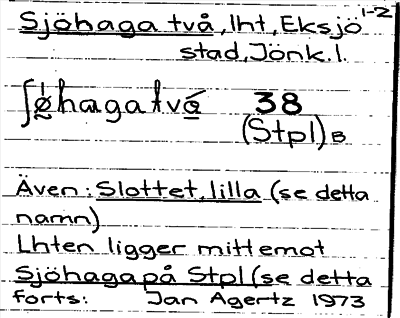 Sjöhaga två, lht, Eksjö 1-2
stad, Jönk. l.
38
(Stpl) B
Även: Slottet, lilla (se detta
namn)
Lhten ligger mittemot
Sjöhaga på Stpl (se detta
forts: Jan Agertz 1973